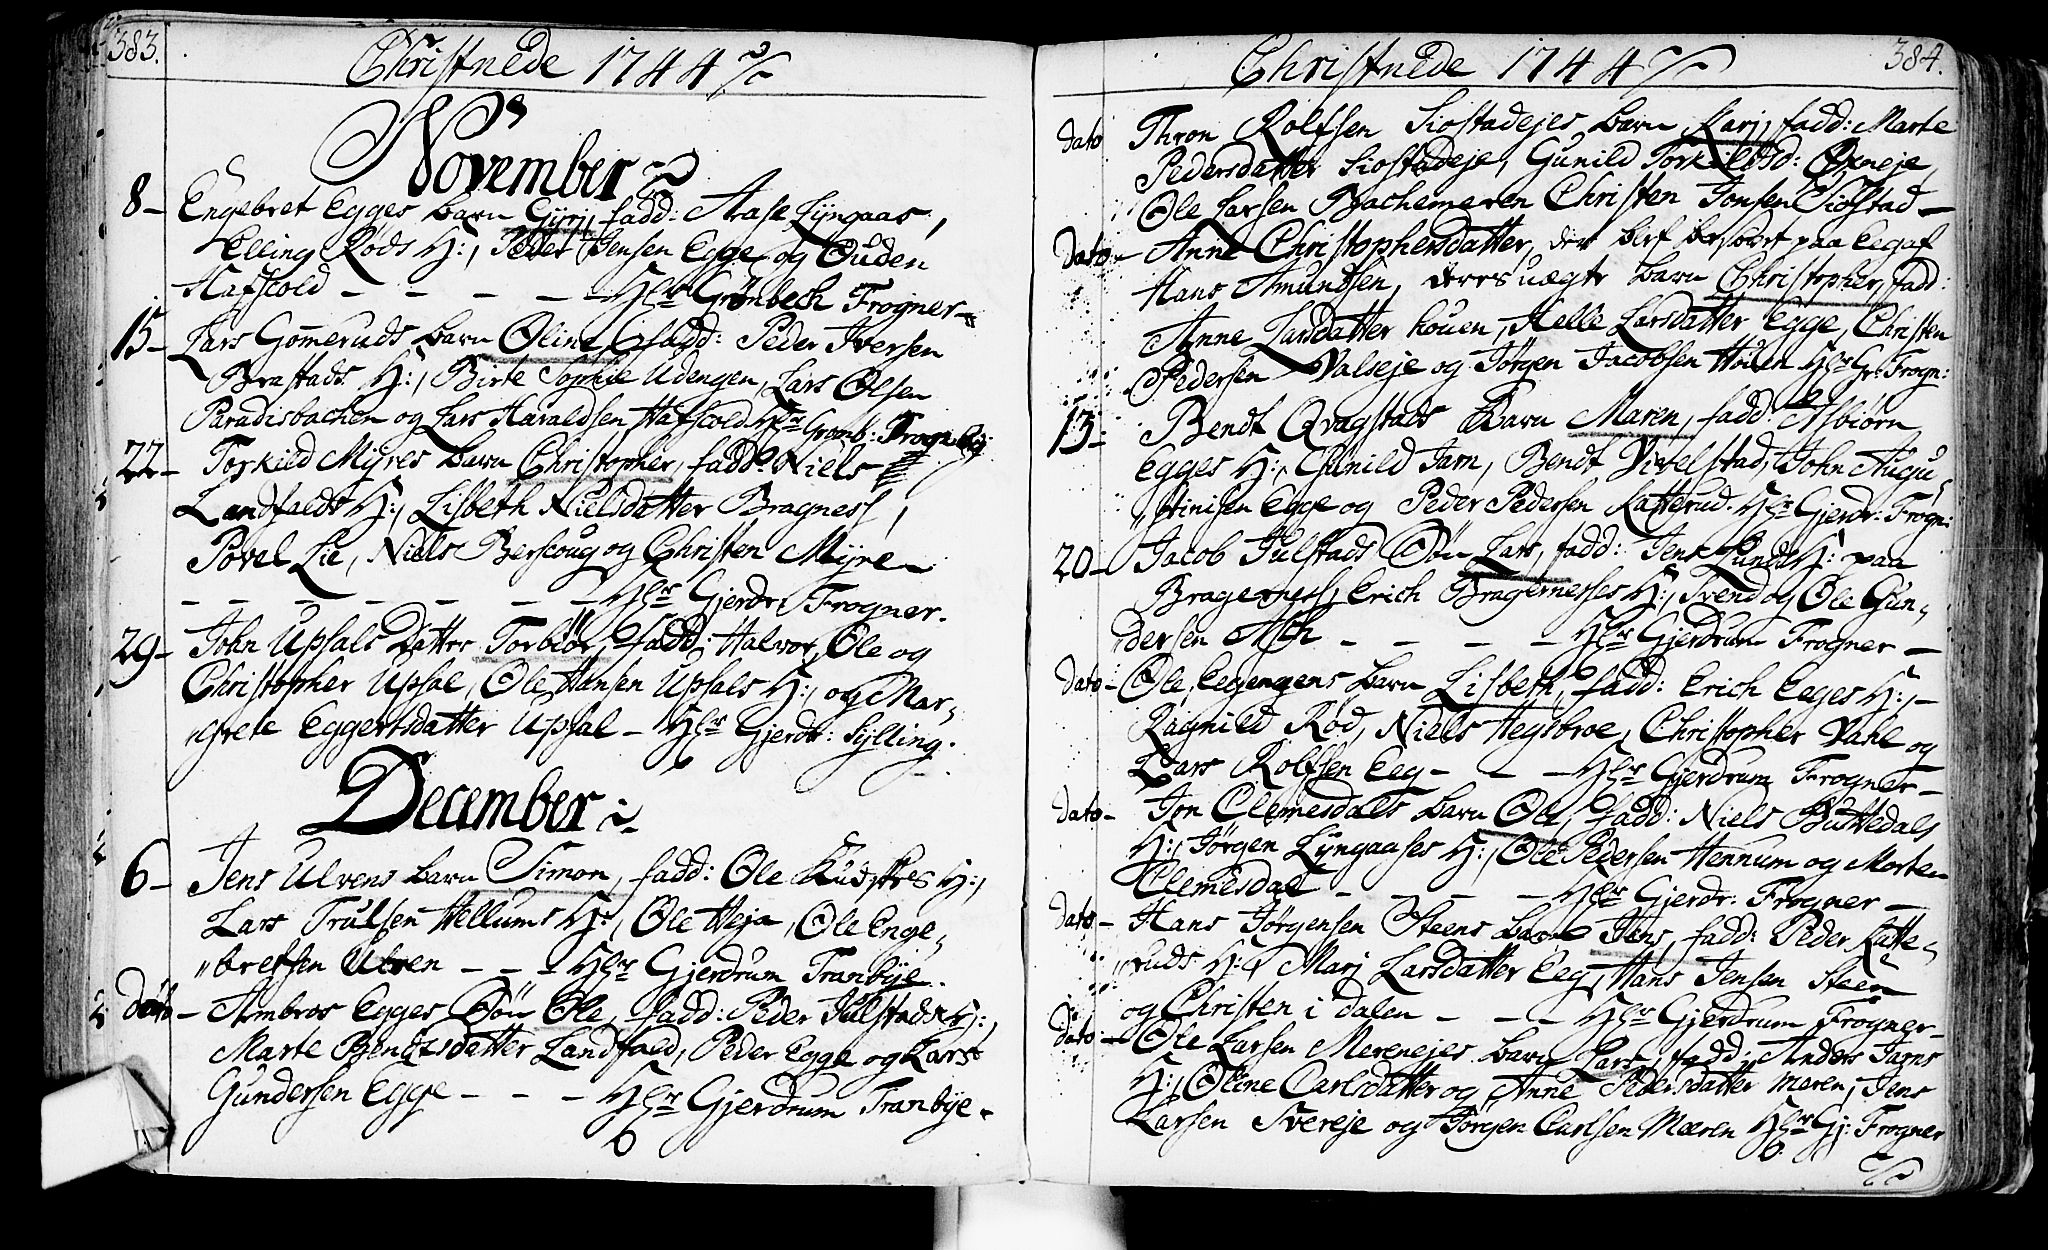 383.
Christnede 1744
November
8 - Engebret Egges barn Gÿrj, fadd: Aase Lÿngaas,
Elling Røds H:, Peder Jensen Egge og Ouden
Hafscold - - - - - Hlr Grønbech Frogner -
15 - Lars Gomeruds barn Oline, fadd: Peder Iversen
Brastads H:, Birte Sophie Udengen, Lars Olsen
Paradisbachen og Lars Haraldsen Hafscold Hr Grønb: Frogn:
22 - Torkild Myres barn Christopher, fadd: Niels
Landfalds H:, Lisbeth Nielsdatter Bragness,
Povel Lie, Niels Berscoug og Christen Myre -
- - - - - - Hlr Gjerdr: Frogner.
29 - John Upsals datter Torbiør, fadd: Halvor, Ole og
Christopher Upsal, Ole Hansen Upsals H:, og Mar-
"grete Eggertsdatter Upsal - Hlr Gjerdr: Sylling.
December
6 - Jens Ulvens barn Simon, fadd: Ole H:,
Lars Trulsen Hellums H:, Ole Heja, Ole Enge-
"bretsen Ulven - - - Hlr Gjerdrum Tranbÿe.
Dato - Ambros Egges Søn Ole, fadd: Peder Julstads H:,
Marte Bendtsdatter Landfald, Peder Egge og Lars
Gundersen Egge - - - Hlr Gjerdrum Tranbÿe -
384.
Christnede 1744
dato Thron Rolfsen Siostadejes barn Karj, fadd: Marte
Pedersdatter Siostadeje, Gunild Torkildsd: Oxneje,
Ole Larsen Bachemeren Christen Jonsen Siostad -
Dato - Anne Christophersdatter, paa Eeg af
Hans Amundsen, deres uægte barn Christopher, fadd:
Anne Larsdatter houen, Helle Larsdatter Egge, Christen
Pedersen Valseje og Jørgen Jacobsen Houen Hlr Gr: Frogn:
13 - Bendt Qvagstads Barn Maren, fadd: Asbiørn
Egges H:, Gunild Jarn, Bendt Vivelstad, John Augu-
"stinisen Egge og Peder Pedersen Katterud. Hlr Gjerdr: Frogn:
20 - Jacob Julstads Søn Lars, fadd: Jens Lunds H: paa
Bragerness, Erich Bragernesses H:, Svend og Ole Gun-
"dersen Ash - - - - Hlr Gjerdrum Frogner -
dato - Ole Eegengens barn Lisbeth, fadd: Erich Eeges H:, -
Ragnild Rød, Niels Hegsbroe, Christopher Vahl og
Lars Rolfsen Eeg - - - Hlr Gjerdrum Frogner -
dato - Jon Clemesdals barn Ole, fadd: Niels Buttedals
H:, Jørgen Lÿngaases H:, Ole Pedersen Hennum og Morten
Clemesdal - - - - - Hlr Gjerdr: Frogner -
dato - Hans Jørgensen Steens barn Jens, fadd: Peder Katte-
"ruds H:, Marj Larsdatter Eeg, Hans Jensen Steen
og Christen i dalen - - - Hlr Gjerdrum Frogner -
dato - Ole Larsen Merenejes barn Lars, fadd: Anders Jarns
H:, Oline Carlsdatter og Anne Pedersdatter Meren, Jens
Larsen Svereje og Jørgen Carlsen Mæren Hlr Gj: Frogner